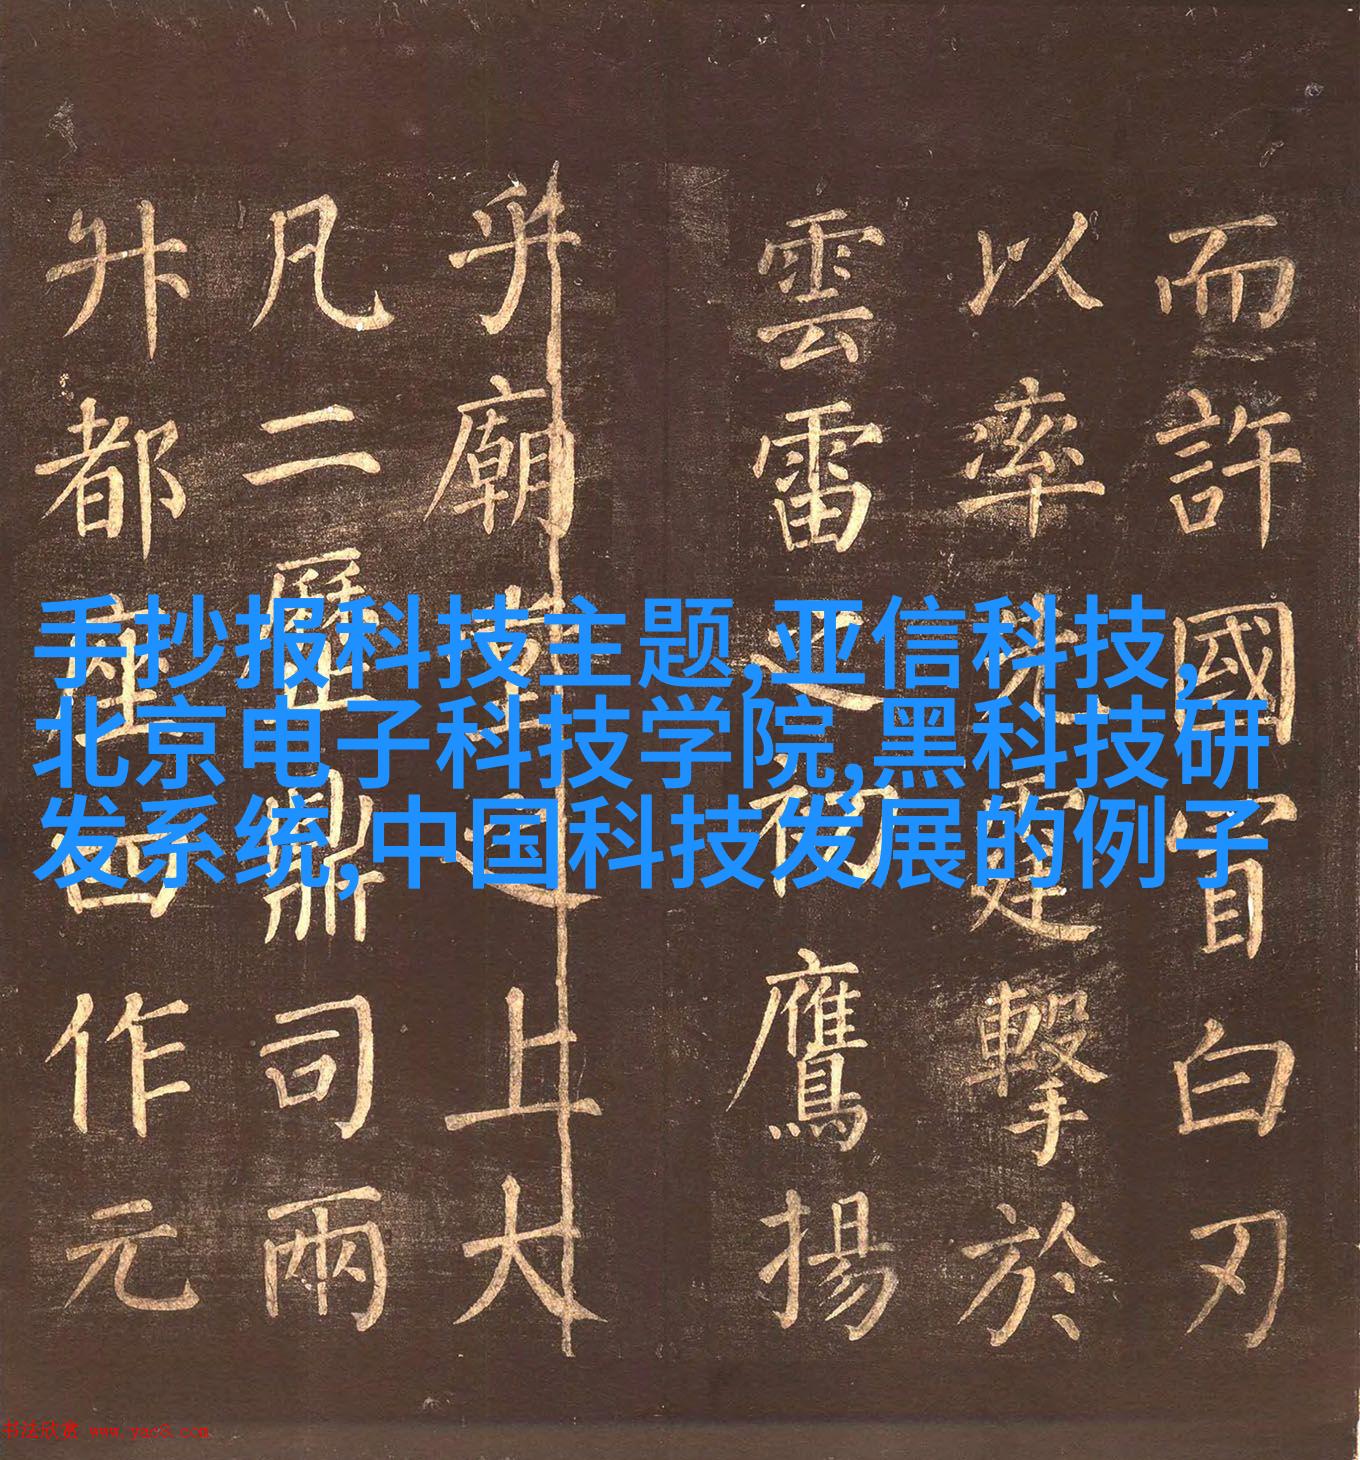 手抄报科技主题,亚信科技,
北京电子科技学院,黑科技研
发系统,中国科技发展的例子
而許國冒白刃
以率先霆擊於
雲雷之初鷹揚
乎廟堂之上大
凡二歷鼎司兩
升都座四作元
书法欣赏 www.yac8.com